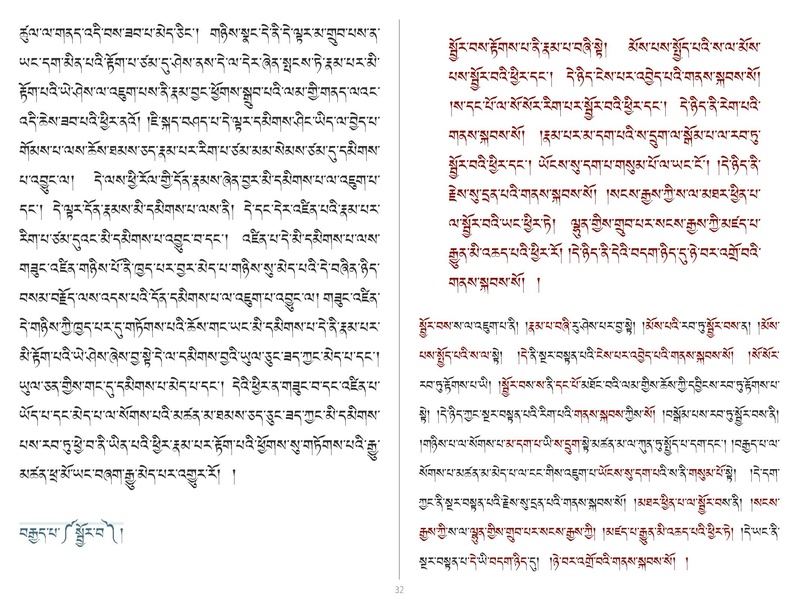 ཚུལ་ལ་གནད་འདི་བས་ཟབ་པ་མེད་ཅིང་། གཉིས་སྣང་དེ་ནི་དེ་ལྟར་མ་གྲུབ་པས་ན་
ཡང་དག་མིན་པའི་རྟོག་པ་ཙམ་དུ་ཤེས་ནས་དེ་ལ་དེར་ཞེན་སྤངས་ཏེ་རྣམ་པར་མི་
རྟོག་པའི་ཡེ་ཤེས་ལ་འཇུག་པས་ནི་རྣམ་བྱང་ཕྱོགས་སྒྲུབ་པའི་ལམ་གྱི་གནད་ལའང་
འདི་ཆེས་ཟབ་པའི་ཕྱིར་ནའོ། །ཇི་སྐད་བཤད་པ་དེ་ལྟར་དམིགས་ཤིང་ཡིད་ལ་བྱེད་པ་
གོམས་པ་ལས་ཆོས་ཐམས་ཅད་རྣམ་པར་རིག་པ་ཙམ་མམ་སེམས་ཙམ་དུ་དམིགས་
པ་འབྱུང་ལ། དེ་ལས་ཕྱི་རོལ་གྱི་དོན་རྣམས་ཞེན་བྱར་མི་དམིགས་པ་ལ་འཇུག་པ་
དང་། དེ་ལྟར་དོན་རྣམས་མི་དམིགས་པ་ལས་ནི། དེ་དང་དེར་འཛིན་པའི་རྣམ་པར་
རིག་པ་ཙམ་དུའང་མི་དམིགས་པ་འབྱུང་བ་དང་། འཛིན་པ་དེ་མི་དམིགས་པ་ལས་
གཟུང་འཛིན་གཉིས་པོ་ནི་ཁྱད་པར་བྱར་མེད་པ་གཉིས་སུ་མེད་པའི་དེ་བཞིན་ཉིད་
བསམ་བརྗོད་ལས་འདས་པའི་དོན་དམིགས་པ་ལ་འཇུག་པ་འབྱུང་ལ། གཟུང་འཛིན་
དེ་གཉིས་ཀྱི་ཁྱད་པར་དུ་གཏོགས་པའི་ཆོས་གང་ཡང་མི་དམིགས་པ་དེ་ནི་རྣམ་པར་
མི་རྟོག་པའི་ཡེ་ཤེས་ཞེས་བྱ་སྟེ་དེ་ལ་དམིགས་བྱའི་ཡུལ་ཅུང་ཟད་ཀྱང་མེད་པ་དང་།
ཡུལ་ཅན་གྱིས་གང་དུ་དམིགས་པ་མེད་པ་དང་། དེའི་ཕྱིར་ན་གཟུང་བ་དང་འཛིན་པ་
ཡོད་པ་དང་མེད་པ་ལ་སོགས་པའི་མཚན་མ་ཐམས་ཅད་ཅུང་ཟད་ཀྱང་མི་དམིགས་
པས་རབ་ཏུ་ཕྱེ་བ་ནི་ཡིན་པའི་ཕྱིར་རྣམ་པར་རྟོག་པའི་ཕྱོགས་སུ་གཏོགས་པའི་རྒྱུ་
མཚན་ཕྲ་མོ་ཡང་བཞག་རྒྱུ་མེད་པར་འགྱུར་རོ། །
བརྒྱད་པ་༼སྦྱོར་བ༽།
སྦྱོར་བས་རྟོགས་པ་ནི་རྣམ་པ་བཞི་སྟེ། མོས་པས་སྤྱོད་པའི་ས་ལ་མོས་
པས་སྦྱོར་བའི་ཕྱིར་དང་། དེ་ཉིད་ངེས་པར་འབྱེད་པའི་གནས་སྐབས་སོ།
།ས་དང་པོ་ལ་སོ་སོར་རིག་པར་སྦྱོར་བའི་ཕྱིར་དང་། དེ་ཉིད་ནི་རེག་པའི་
གནས་སྐབས་སོ། །རྣམ་པར་མ་དག་པའི་ས་དྲུག་ལ་སྒོམ་པ་ལ་རབ་ཏུ་
སྦྱོར་བའི་ཕྱིར་དང་། ཡོངས་སུ་དག་པ་གསུམ་པོ་ལ་ཡང་ངོ་། །དེ་ཉིད་ནི་
རྗེས་སུ་དྲན་པའི་གནས་སྐབས་སོ། །སངས་རྒྱས་ཀྱི་ས་ལ་མཐར་ཕྱིན་པ་
ལ་སྦྱོར་བའི་ཡང་ཕྱིར་ཏེ། ལྷུན་གྱིས་གྲུབ་པར་སངས་རྒྱས་ཀྱི་མཛད་པ་
རྒྱུན་མི་འཆད་པའི་ཕྱིར་རོ། །དེ་ཉིད་ནི་དེའི་བདག་ཉིད་དུ་ཉེ་བར་འགྲོ་བའི་
གནས་སྐབས་སོ། །
སྦྱོར་བས་ས་ལ་འཇུག་པ་ནི། །རྣམ་པ་བཞི་རུ་ཤེས་པར་བྱ་སྟེ། །མོས་པའི་རབ་ཏུ་སྦྱོར་བས་ན། །མོས་
པས་སྤྱོད་པའི་ས་ལ་སྟེ། །དེ་ནི་སྔར་བསྟན་པའི་ངེས་པར་འབྱེད་པའི་གནས་སྐབས་སོ། །སོ་སོར་
རབ་ཏུ་རྟོགས་པ་ཡི། །སྦྱོར་བས་ས་ནི་དང་པོ་མཐོང་བའི་ལམ་གྱིས་ཆོས་ཀྱི་དབྱིངས་རབ་ཏུ་རྟོགས་པ་
སྟེ། །དེ་ཉིད་ཀྱང་སྔར་བསྟན་པའི་རིག་པའི་གནས་སྐབས་ཀྱིས་སོ། །བསྒོམ་པས་རབ་ཏུ་སྦྱོར་བས་ནི།
།གཉིས་པ་ལ་སོགས་པ་མ་དག་པ་ཡི་ས་དྲུག་སྟེ་མཚན་མ་ལ་ཀུན་ཏུ་སྤྱོད་པ་དག་དང་། །བརྒྱད་པ་ལ་
སོགས་པ་མཚན་མ་མེད་པ་ལ་ངང་གིས་འཇུག་པ་ཡོངས་སུ་དག་པའི་ས་ནི་གསུམ་པོ་སྟེ། །དེ་དག་
ཀྱང་ནི་སྔར་བསྟན་པའི་རྗེས་སུ་དྲན་པའི་གནས་སྐབས་སོ། །མཐར་ཕྱིན་པ་ལ་སྦྱོར་བས་ནི། །སངས་
རྒྱས་ཀྱི་ས་ལ་ལྷུན་གྱིས་གྲུབ་པར་སངས་རྒྱས་ཀྱི། །མཛད་པ་རྒྱུན་མི་འཆད་པའི་ཕྱིར་ཏེ། །དེ་ཡང་ནི་
སྔར་བསྟན་པ་དེ་ཡི་བདག་ཉིད་དུ། །ཉེ་བར་འགྲོ་བའི་གནས་སྐབས་སོ། །
32